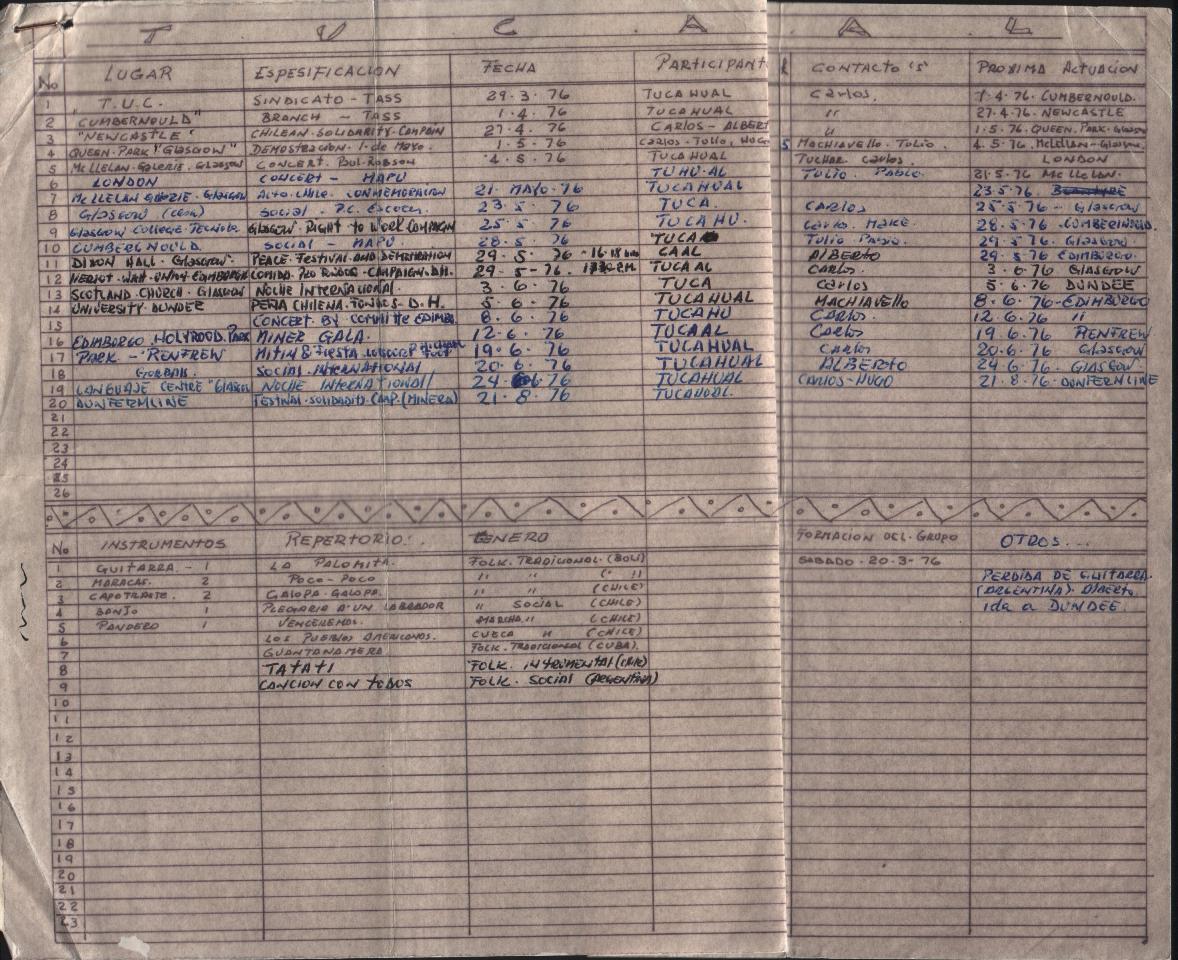 T U C A A L
No LUGAR ESPESIFICACION FECHA PARTICIPANT CONTACTO 'S' PROXIMA ACTUACION
1 T.U.C. SINDICATO - TASS 29.3.76 TUCAHUAL Carlos. 1.4.76. CUMBERNOULD.
2 CUMBERNOULD" BRANCH - TASS 1.4.76 TUCAHUAL " 27.4.76. NEWCASTLE
3 "NEWCASTLE" CHILEAN.SOLIDARITY.COMPAIN 27.4.76 CARLOS - ALBERT " 1.5.76. QUEEN.PARK.Glasgow
4 QUEEN.PARK "GLASGOW" DEMOSTRACION. 1.de Mayo. 1.5.76 Carlos - Tulio, HUGO S MACHIAVELLO. TULIO. 4.5.76. McLellan-Glasgow.
5 Mc LELLAN-Galerie. Glasgow CONCERT. Paul-Robson 4.5.76 TUCAHUAL TUCHAR Carlos. LONDON
6 LONDON CONCERT - MAPU TUHU.AL TULIO. Pablo. 21.5.76 Mc LELLAN.
7 Mc LELLAN GALERIE. Glasgow ACTO.CHILE. CONMEMORACION 21. MAYO.76 TUCAHUAL 23.5.76.
8 Glasgow (casa) SOCIAL. P.C. Escoces. 23.5.76 TUCA. CARLOS 25.5.76 - Glasgow
9 GLASGOW COLLEGE TECNOLO. GLASGOW. RIGHT to WORK COMPAIGN 25.5.76 TUCAHU. Carlos. MAKE. 28.5.76. CUMBERNOULD
10 CUMBERGNOULD. SOCIAL - MAPU 28.5.76 TUCA TULIO PABLO. 29.5.76. Glasgow.
11 DIXON HALL. Glasgow. PEACE.FESTIVAL.AND DEMOSTRATION 29.5.76 - 16.15 hrs CAAL ALBERTO 29.5.76 EDIMBURGO.
12 HERIOT.WATT.UNIV. EDIMBURGH COMIDA. PRO FONDOS.CAMPAIGN.D.H. 29.5-76. TUCAAL CARLOS. 3.6.76 GLASGOW
13 SCOTLAND.CHURCH. GLASGOW NOCHE INTERNATIONAL. 3.6.76 TUCA Carlos 5.6.76 DUNDEE
14 UNIVERSITY.DUNDEE PEÑA CHILENA.FONDOS D.H. 5.6.76 TUCAHUAL MACHIAVELLO 8.6.76-EDIMBURGO
15 CONCERT. BY COMMITTE EDIMB. 8.6.76 TUCAHU CARLOS. 12.6.76 "
16 EDIMBORGO.HOLYROOD.PARK MINER GALA. 12.6.76 TUCAAL CARLOS 19.6.76 RENFREW
17 PARK - RENFREW MITIN & FIESTA. 19.6.76 TUCAHUAL Carlos 20.6.76 Glasgow
18 GORBALS. SOCIAL.INTERNATIONAL 20.6.76 TUCAHUAL ALBERTO 24.6.76. GLASGOW.
19 LANGUAJE CENTRE "Glasgow NOCHE INTERNATIONAL 24. 6.76 TUCAHUAL CARLOS-HUGO 21.8.76.DUNFERMLINE
20 DUNFERMLINE FESTIVAL.SOLIDARITY.CAMP.(MINERS) 21.8.76 TUCAHUAL.
21
22
23
24
25
26
No INSTRUMENTOS REPERTORIO. GENERO FORMACION DEL.GRUPO OTROS...
1 GUITARRA. - 1 LA PALOMITA. FOLK. TRADICIONAL.(BOLI) SABADO.20-3-76
2 MARACAS. 2 POCO-POCO " " (" ") PERDIDA DE GUITARRA.
3 CAPOTRASTE. 2 GALOPA-GALOPA. " " (CHILE) (ARGENTINA). Alberto.
4 BANJO 1 PLEGARIA A'UN LABRADOR " SOCIAL (CHILE) ida a DUNDEE.
5 PANDERO 1 VENCEREMOS. MARCHA." (CHILE)
6 LOS PUEBLOS AMERICANOS. CUECA " (CHILE)
7 GUANTANAMERA FOLK.TRADICIONAL (CUBA).
8 TATATI FOLK. INTRUMENTAL (CHILE)
9 CANCION CON TODOS FOLK. SOCIAL (ARGENTINA)
10
11
12
13
14
15
16
17
18
19
20
21
22
23